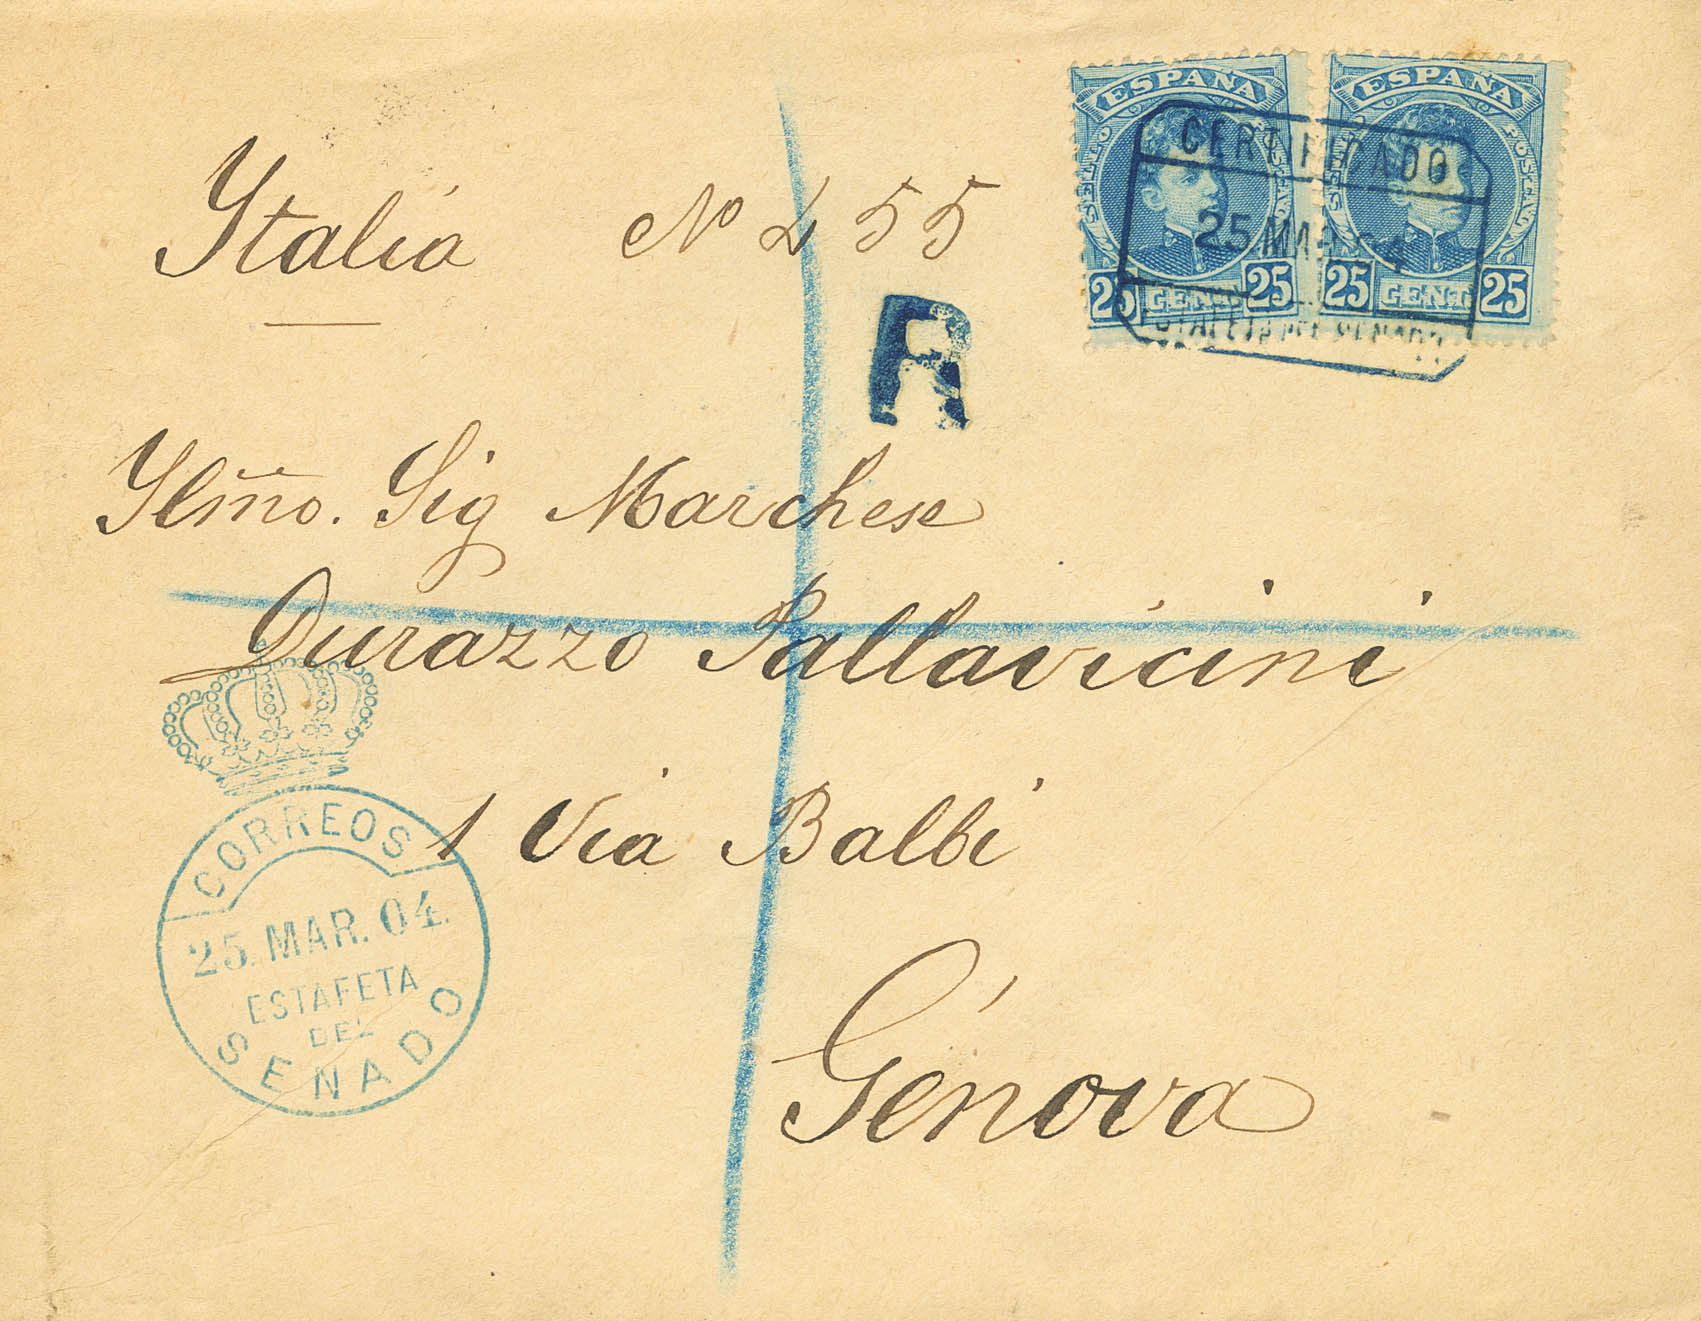 ESPAÑA ESPAÑA
SELLO POSTAL
25 CENT. 25 25 CENT. 25
CERTIFICADO
25 MAR 04
ESTAFETA DEL SENADO
Italia Nº 255
R
Ylm̃o. Sig Marchese
Durazzo Pallavicini
1 Via Balbi
Génova
CORREOS
25. MAR. 04.
ESTAFETA
DEL
SENADO